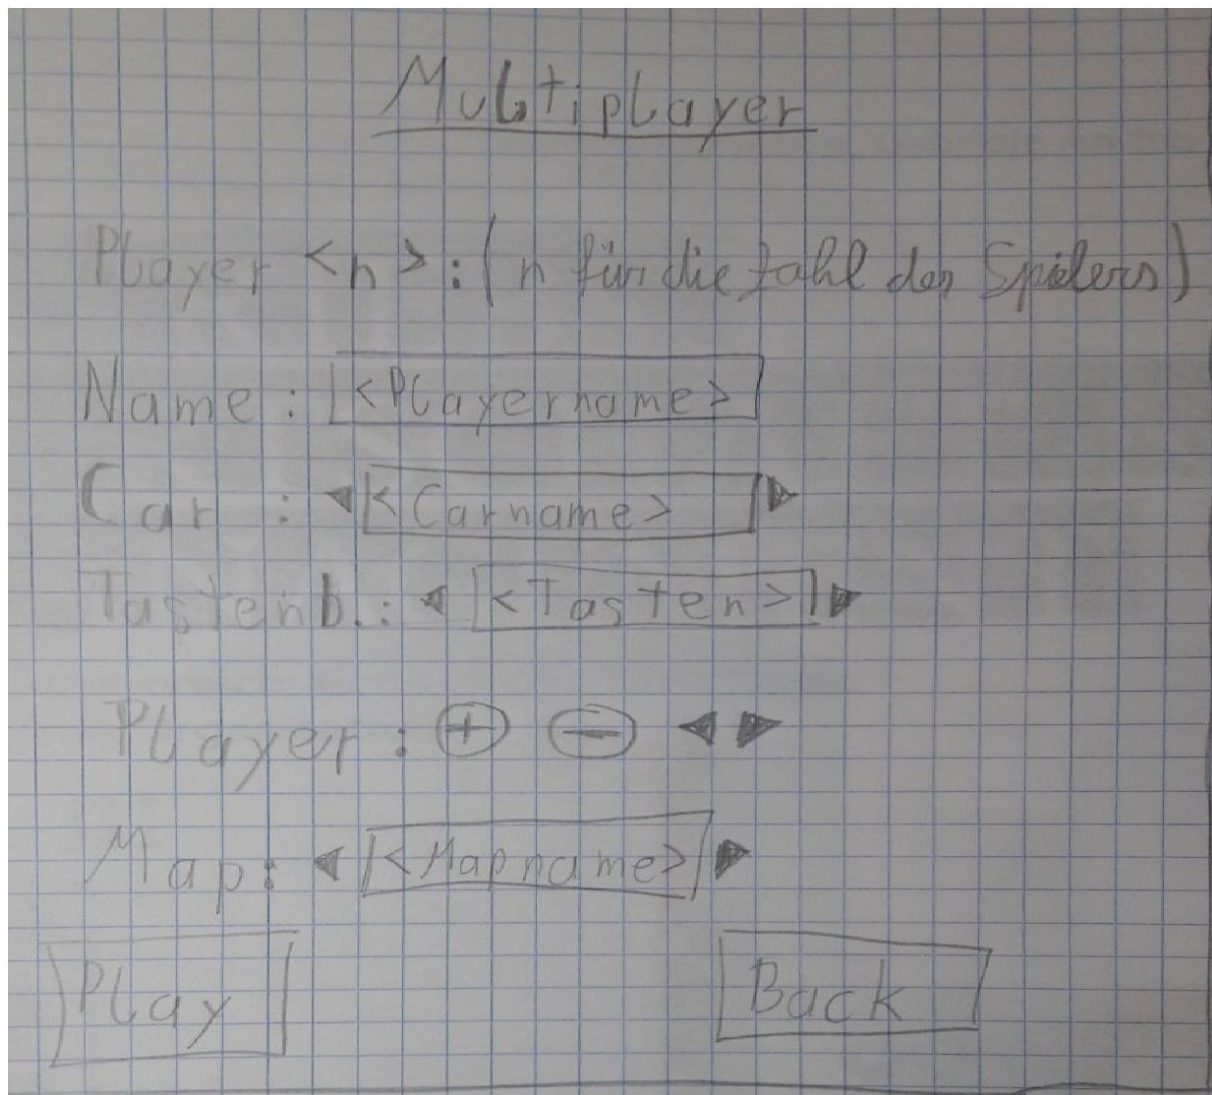 Multiplayer
Player <n>: (n für die Zahl des Spielers)
Name: <Playername>
Car : ◀ <Carname> ▶
Tastenb.: ◀ <Tasten> ▶
Player: + − ◀ ▶
Map: ◀ <Mapname> ▶
Play Back